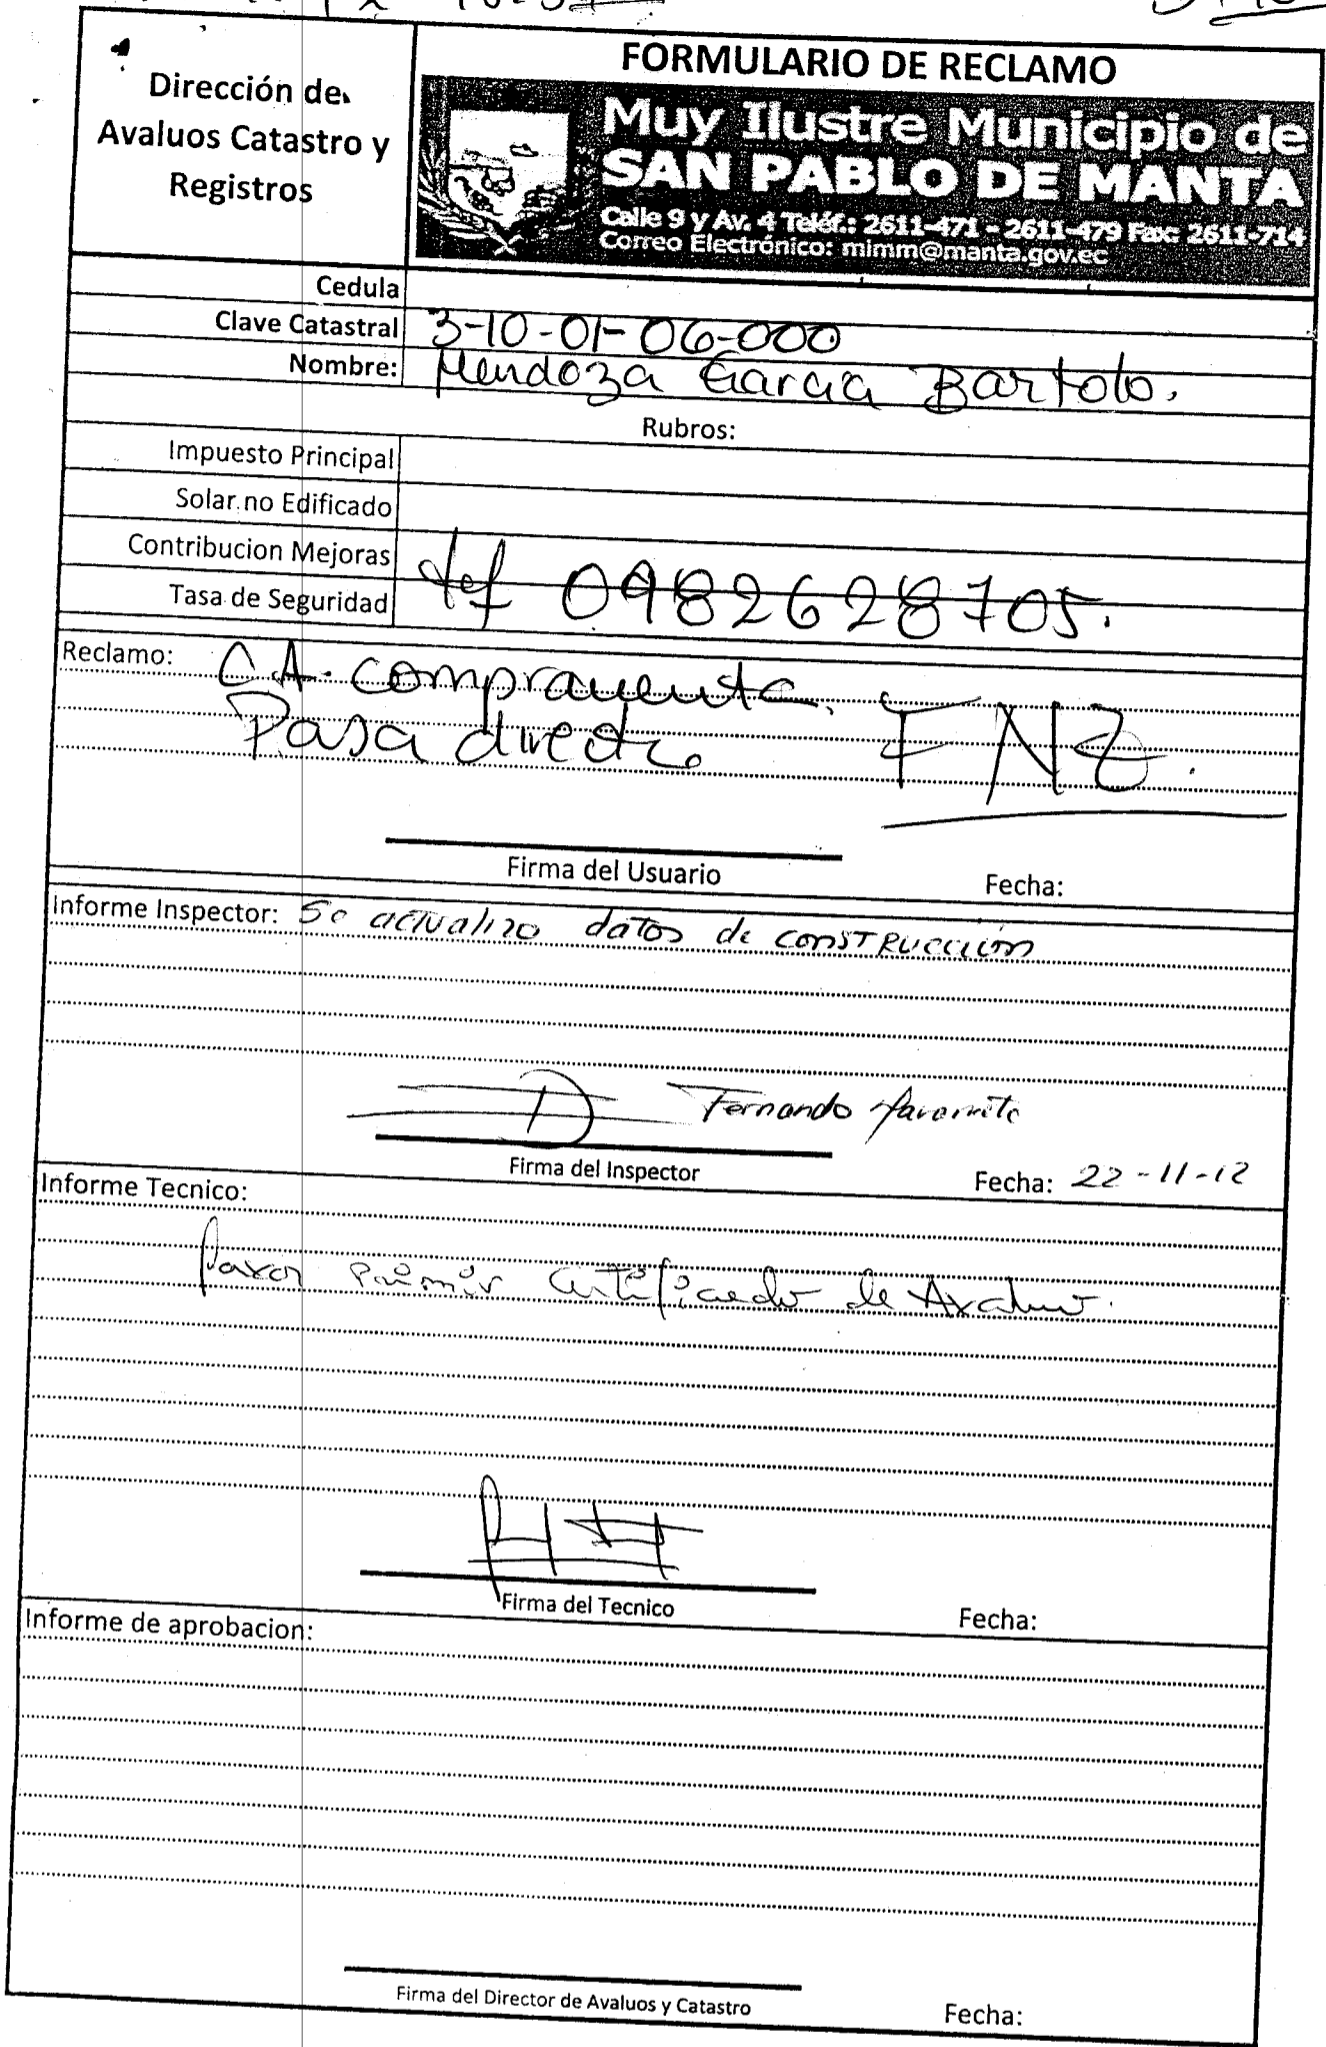 FORMULARIO DE RECLAMO
Dirección de
Avaluos Catastro y
Registros
Muy Ilustre Municipio de
SAN PABLO DE MANTA
Calle 9 y Av. 4 Teléf.: 2611-471 - 2611-479 Fax: 2611-714
Correo Electrónico: mimm@manta.gov.ec
Cedula
Clave Catastral 3-10-01-06-000
Nombre: Mendoza Garcia Bartolo.
Rubros:
Impuesto Principal
Solar no Edificado
Contribucion Mejoras
Tasa de Seguridad tef 0982628705.
Reclamo: C.A. compraventa.
Pasa directo FNZ.
Firma del Usuario Fecha:
Informe Inspector: Se actualizo datos de construccion
Fernando
Firma del Inspector Fecha: 22-11-12
Informe Tecnico:
Favor Primir Certificado de Avaluo.
Firma del Tecnico Fecha:
Informe de aprobacion:
Firma del Director de Avaluos y Catastro Fecha: